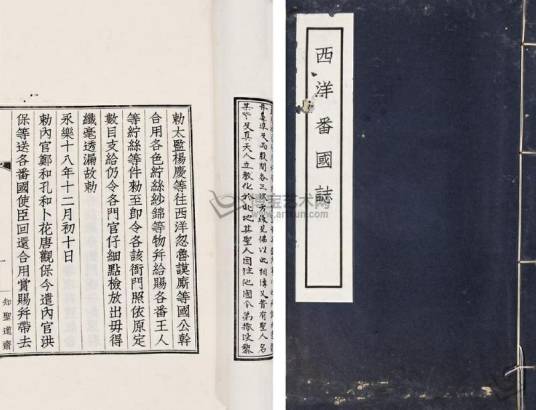 西洋番國誌
勅太監楊慶等往西洋忽魯謨厮等國公幹
合用各色紵絲紗錦等物并給賜各番王人
等紵絲等件勅至即令各該衙門照依原定
數目支給仍令各門官仔細點檢放出毋得
纖毫透漏故勅
永樂十八年十二月初十日
勅內官鄭和孔和卜花唐觀保今遣內官洪
保等送各番國使臣回還合用賞賜并帶去
知聖道齋